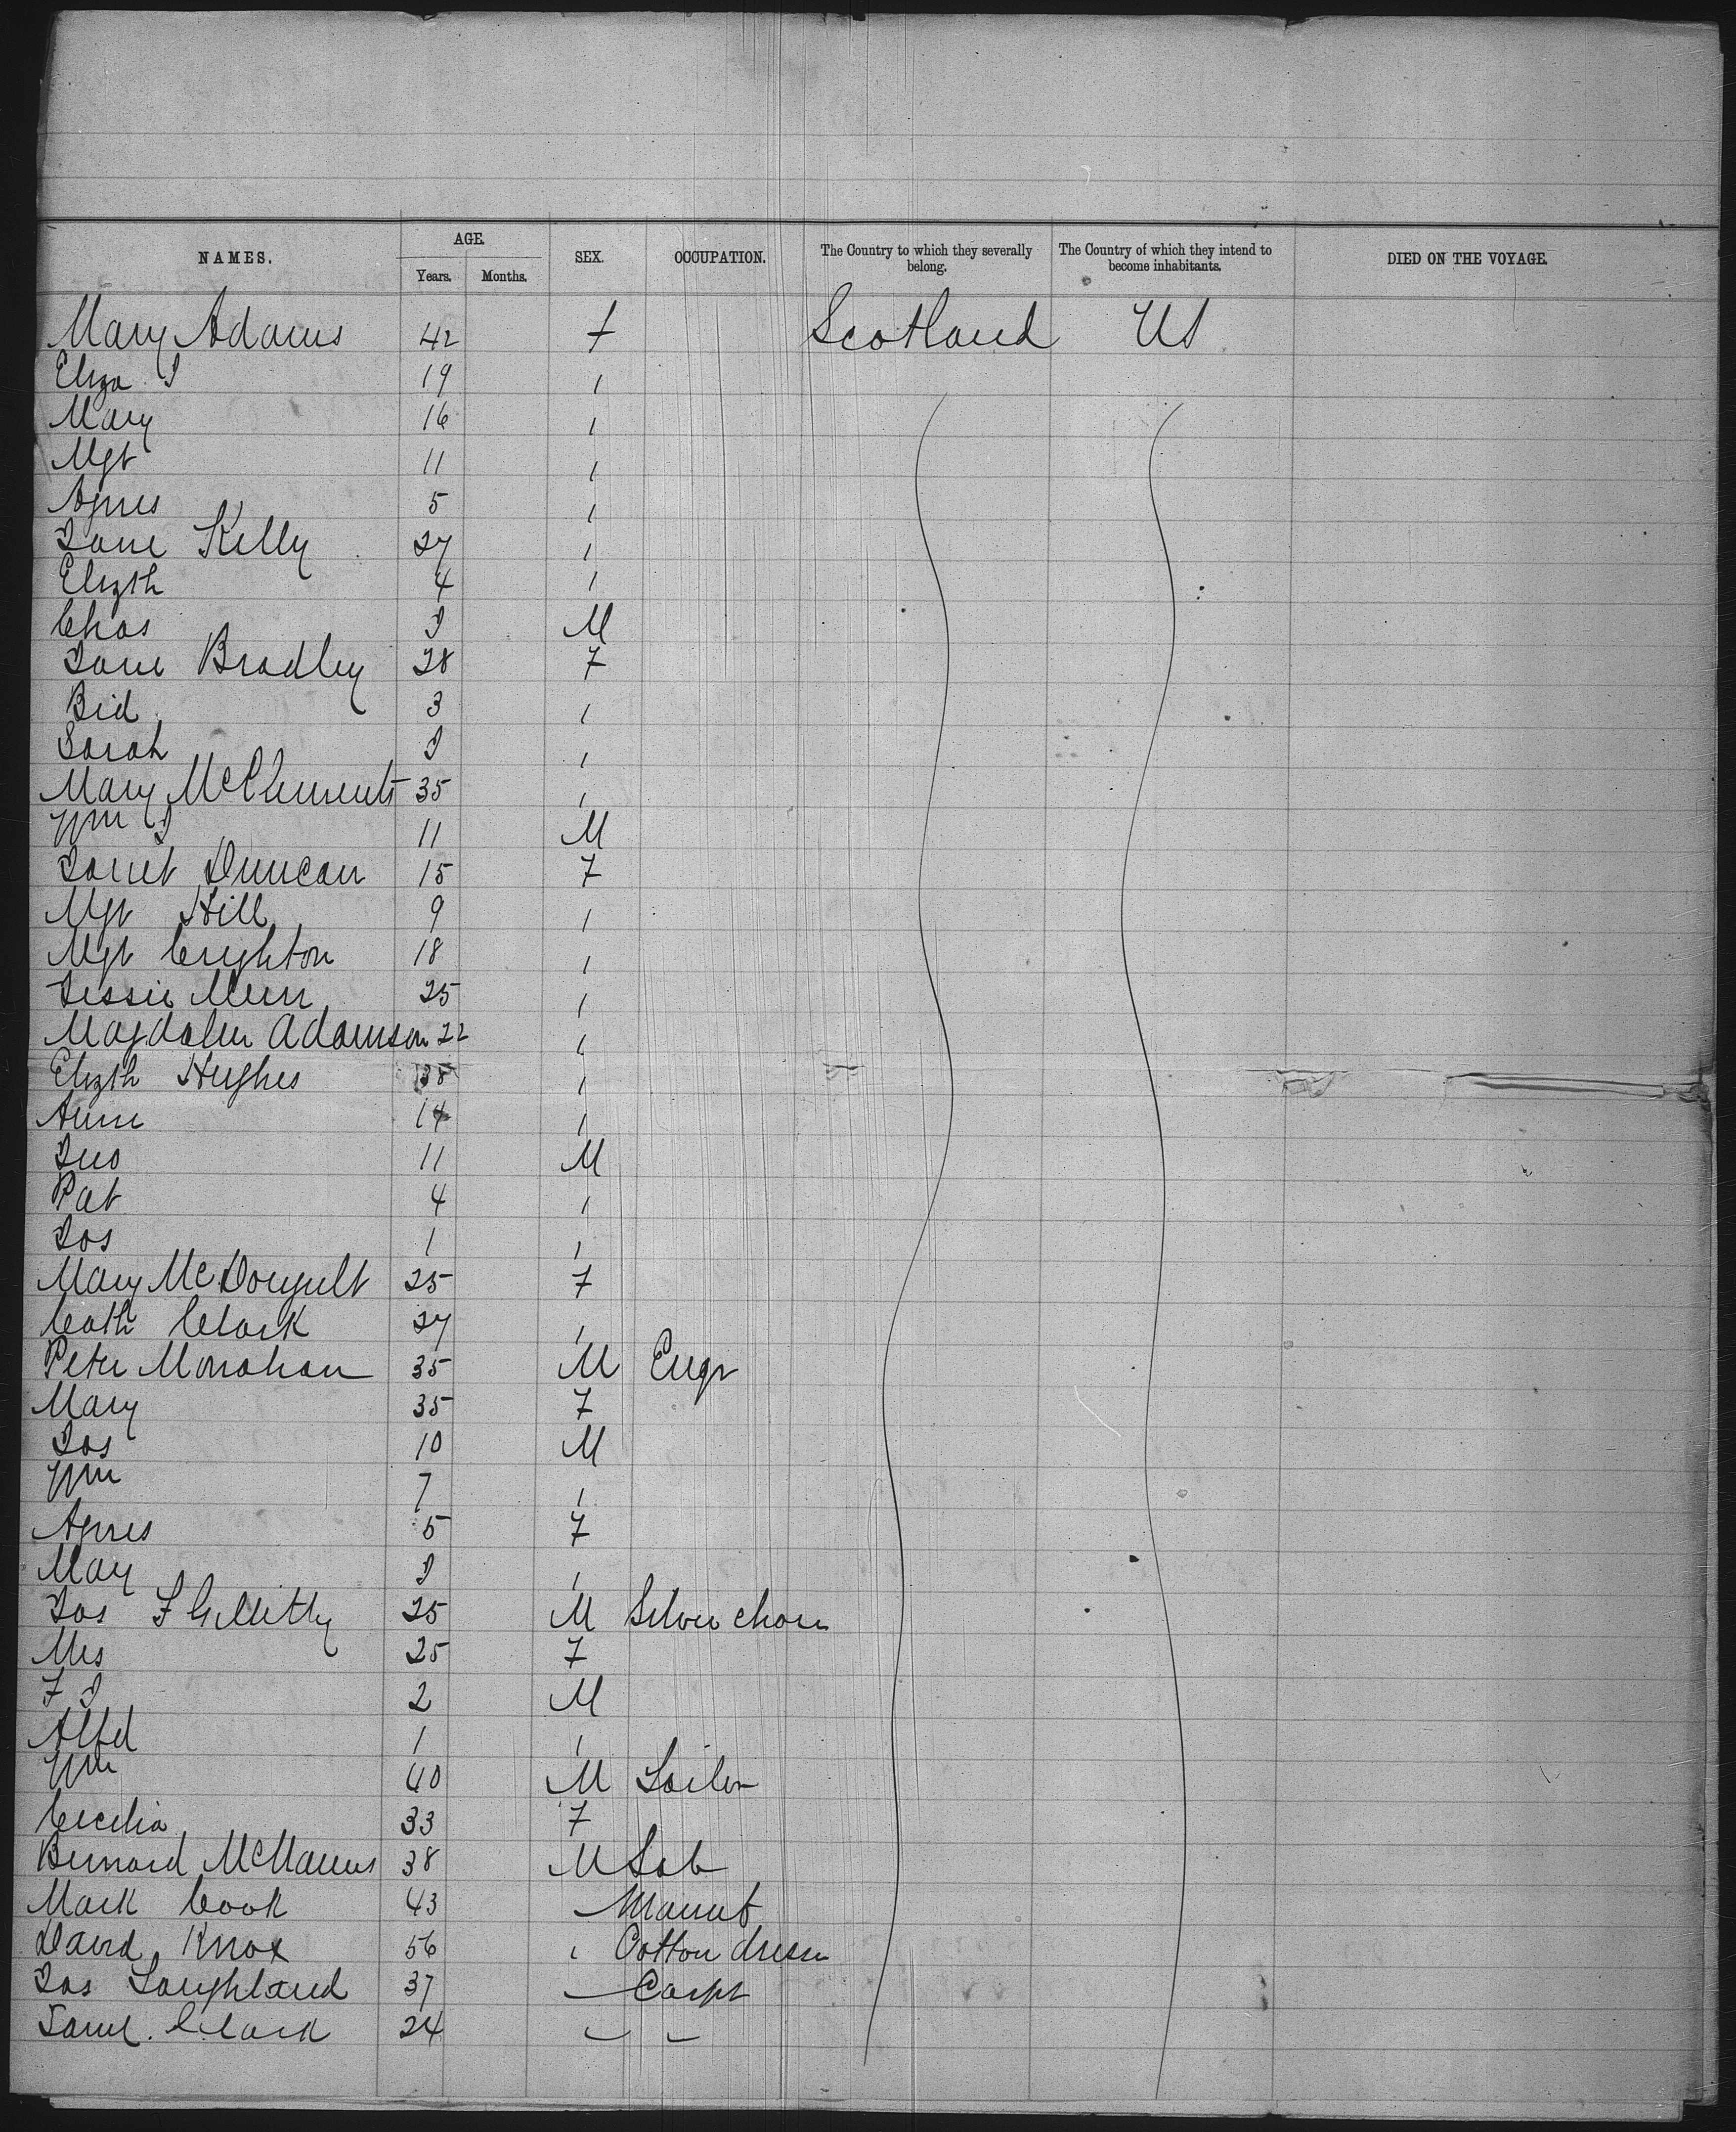 NAMES. AGE. SEX. OCCUPATION. The Country to which they severally belong. The Country of which they intend to become inhabitants. DIED ON THE VOYAGE.
Years. Months.
Mary Adams 42 f Scotland US
Eliza J 19 "
Mary 16 "
Mgt 11 "
Agnes 5 "
Jane Kelly 27 "
Elizth 4 "
Chas M
Jane Bradley 28 F
Bid 3 "
Sarah "
Mary McClements 35 "
Wm J 11 M
Janet Duncan 15 F
Mgt Hill 9 "
Mgt Crighton 18 "
Jessie Muir 25 "
Magdalen Adamson 22 "
Elizth Hughes 38 "
Anne 14 "
Jno 11 M
Pat 4 "
Jos 1 "
Mary McDougall 25 F
Cath Clark 27 "
Peter Monahan 35 M Engr
Mary 35 F
Jas 10 M
Wm 7 "
Agnes 5 F
May "
Jas F 25 M Silver
Mrs 25 F
F J 2 M
Alfd 1 "
Wm 40 M Sailor
Cecilia 33 F
Bernard McManus 38 M Lab
Mark Cook 43 "
David Knox 56 " Cotton
Jas Loughland 37 " Carpt
Saml. Clark 24 " "